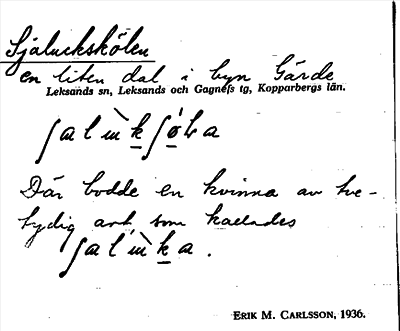 Själinkskölen
en liten dal i byn Gärde
Leksands sn, Leksands och Gagnefs tg, Kopparbergs län.
ʃalìnkʃǿLa
Där bodde en kvinna av tve-
tydig art, som kallades
ʃalìnka.
ERIK M. CARLSSON, 1936.